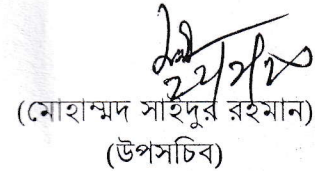 (মোহাম্মদ সাইদুর রহমান)
(উপসচিব)